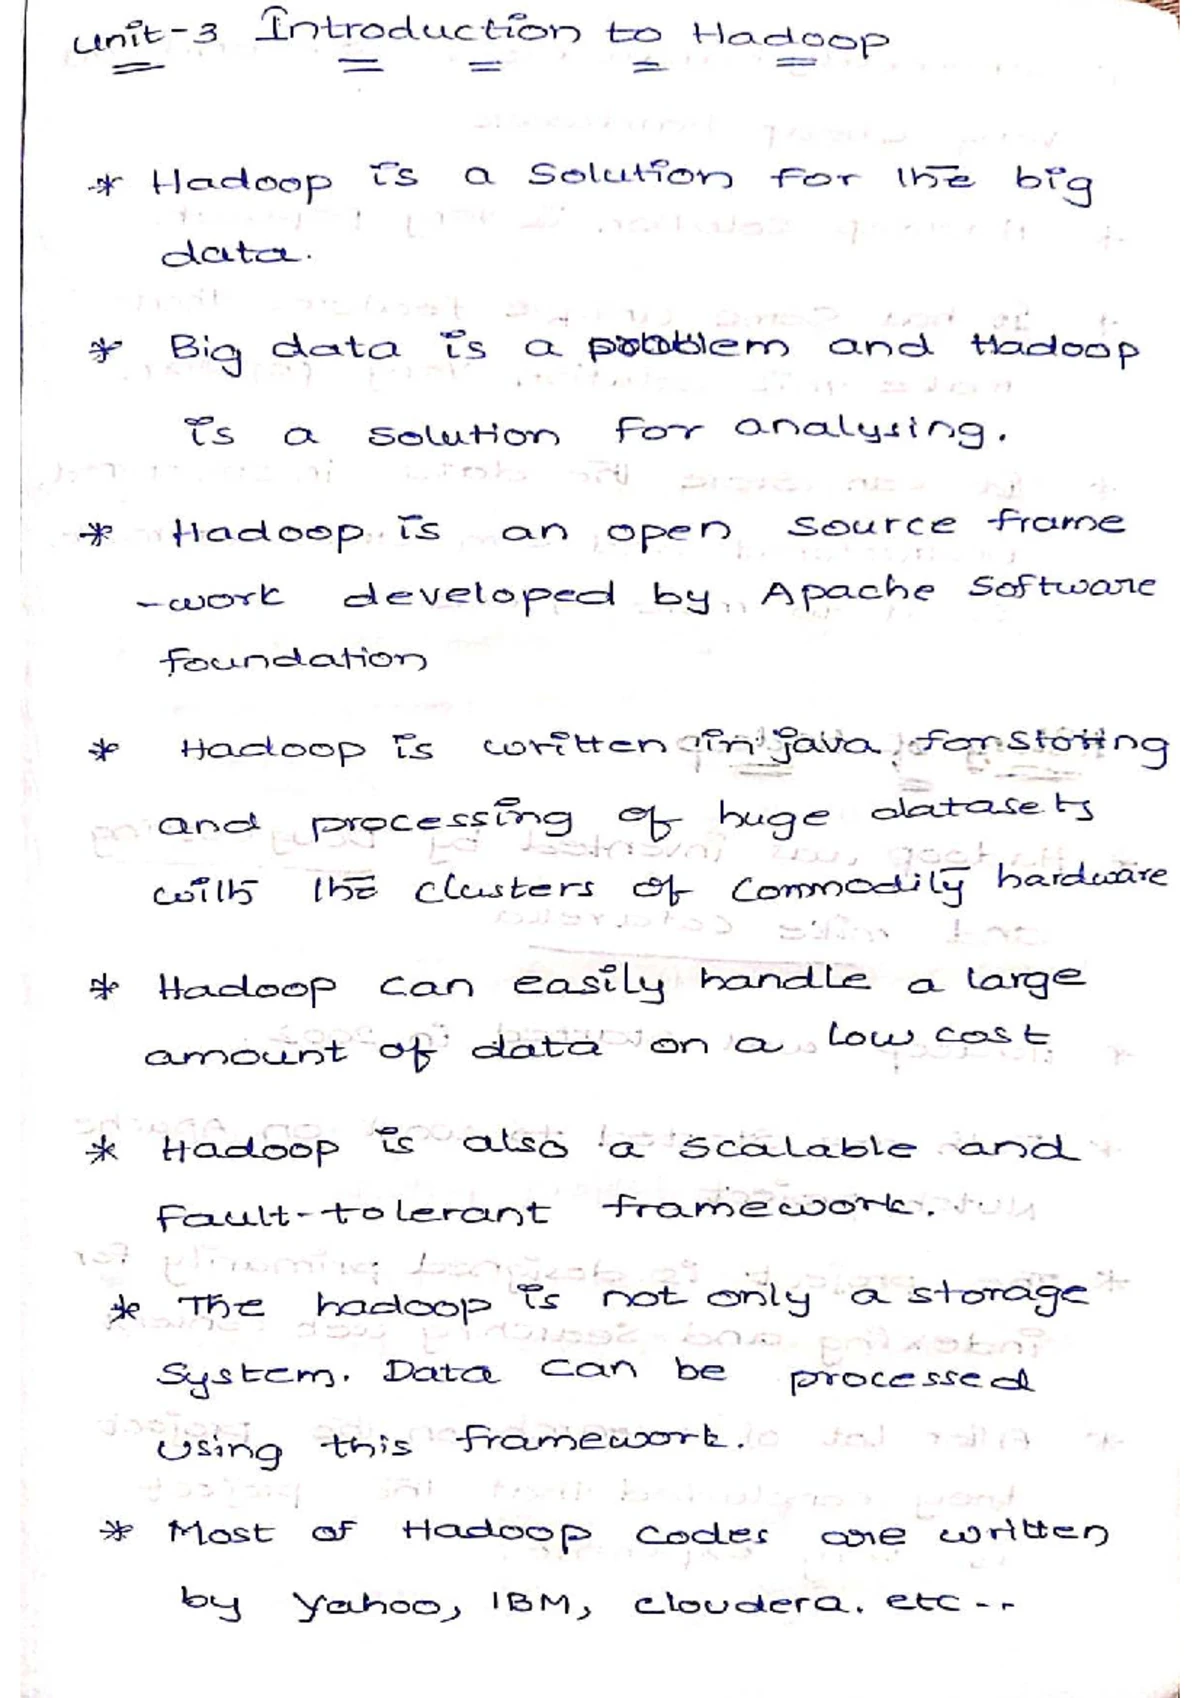 Unit-3 Introduction to Hadoop
* Hadoop is a Solution for the big
data.
* Big data is a problem and Hadoop
is a solution for analysing.
* Hadoop is an open source frame
-work developed by Apache Software
foundation
* Hadoop is written in java for storing
and processing of huge datasets
with the clusters of commodity hardware
* Hadoop can easily handle a large
amount of data on a low cost
* Hadoop is also a scalable and
fault-tolerant framework.
* The hadoop is not only a storage
System. Data can be processed
using this framework.
* Most of Hadoop codes are written
by Yahoo, IBM, cloudera. etc --